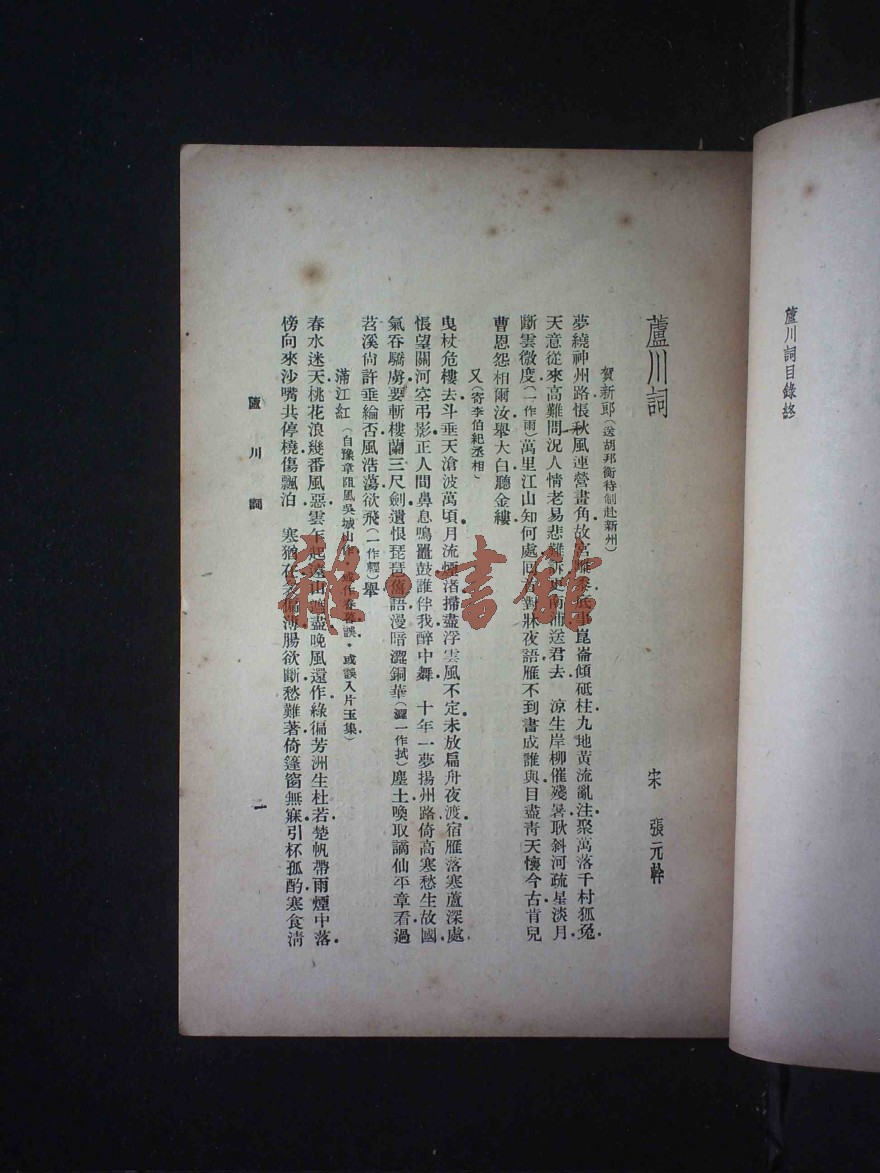 蘆川詞目錄終
蘆川詞
宋　張元幹
賀新郎(送胡邦衡待制赴新州)
夢繞神州路悵秋風連營畫角故宮離黍底事崑崙傾砥柱九地黃流亂注聚萬落千村狐兔
天意從來高難問況人情老易悲難訴更南浦送君去　涼生岸柳催殘暑耿斜河疏星淡月
斷雲微度(一作雨)萬里江山知何處回首對牀夜語雁不到書成誰與目盡靑天懷今古肯兒
曹恩怨相爾汝舉大白聽金縷
又(寄李伯紀丞相)
曳杖危樓去斗垂天滄波萬頃月流煙渚掃盡浮雲風不定未放扁舟夜渡宿雁落寒蘆深處
悵望關河空弔影正人間鼻息鳴鼉鼓誰伴我醉中舞　十年一夢揚州路倚高寒愁生故國
氣吞驕虜要斬樓蘭三尺劍遺恨琵琶舊語漫暗澀銅華(澀一作拭)塵土喚取謫仙平章看過
苕溪尙許垂綸否風浩蕩欲飛(一作輕)舉
滿江紅(自豫章阻風吳城山作 作春暮誤・或誤入片玉集)
春水迷天桃花浪幾番風惡雲乍起遠山遮盡晚風還作綠徧芳洲生杜若楚帆帶雨煙中落
傍向來沙嘴共停橈傷飄泊　寒猶在衾偏薄腸欲斷愁難著倚篷窗無寐引杯孤酌寒食淸
蘆川詞
雜・書館